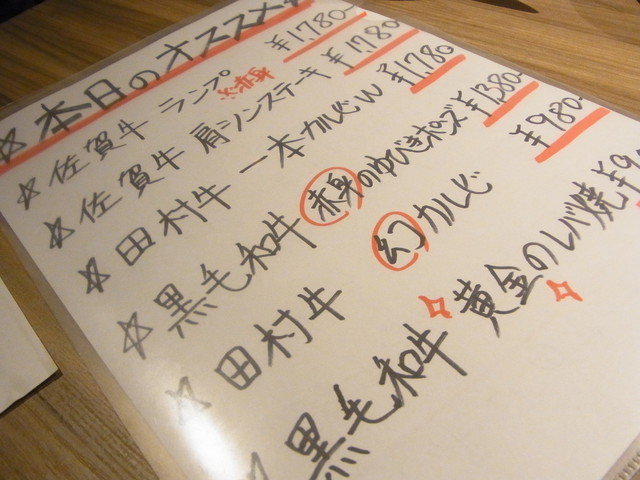 ☆本日のオススメ
☆佐賀牛 ランプ ※赤身 ¥1780-
☆佐賀牛 肩シンステーキ ¥1780-
☆田村牛 一本カルビw ¥1780-
☆黒毛和牛 赤身のゆびきポンズ ¥1380-
☆田村牛 幻カルビ ¥980-
☆黒毛和牛 黄金のレバ焼 ¥9